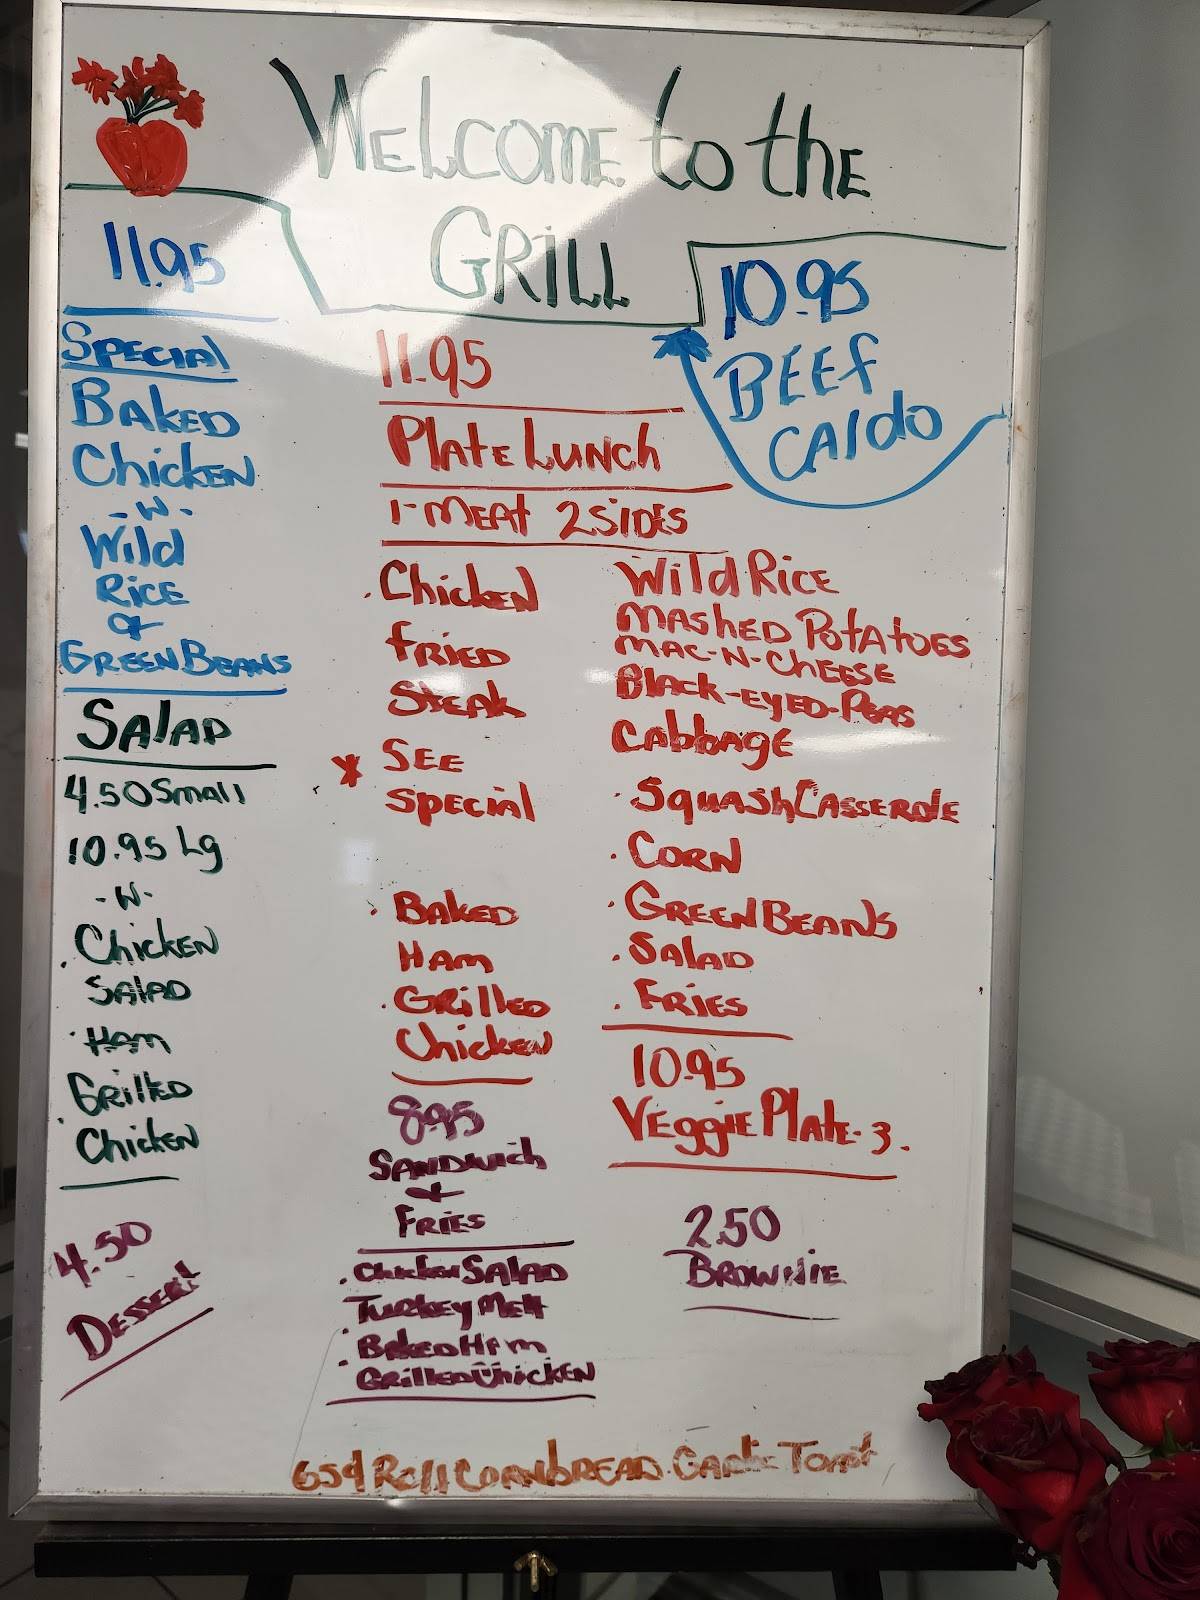 WELCOME to the
GRILL
11.95
SPECIAL
BAKED
Chicken
-W-
Wild
RICE
&
GREEN BEANS
SALAD
4.50 Small
10.95 Lg
-W-
. Chicken
SALAD
. HAM
GRILLED
. Chicken
4.50
DESSERT
11.95
PLATE LUNCH
1-MEAT 2 SIDES
. Chicken
FRIED
STEAK
* SEE
SPECIAL
. BAKED
HAM
. GRILLED
Chicken
8.95
SANDWICH
&
FRIES
. Chicken SALAD
. TURKEY MELT
. BAKED HAM
. GRILLED Chicken
10.95
BEEF
CALDO
Wild RICE
MASHED POTATOES
MAC-N-CHEESE
BLACK-EYED-PEAS
CABBAGE
. SQUASH CASSEROLE
. CORN
. GREEN BEANS
. SALAD
. FRIES
10.95
VEGGIE PLATE-3.
2.50
BROWNIE
65¢ ROLL CORNBREAD GARLIC TOAST